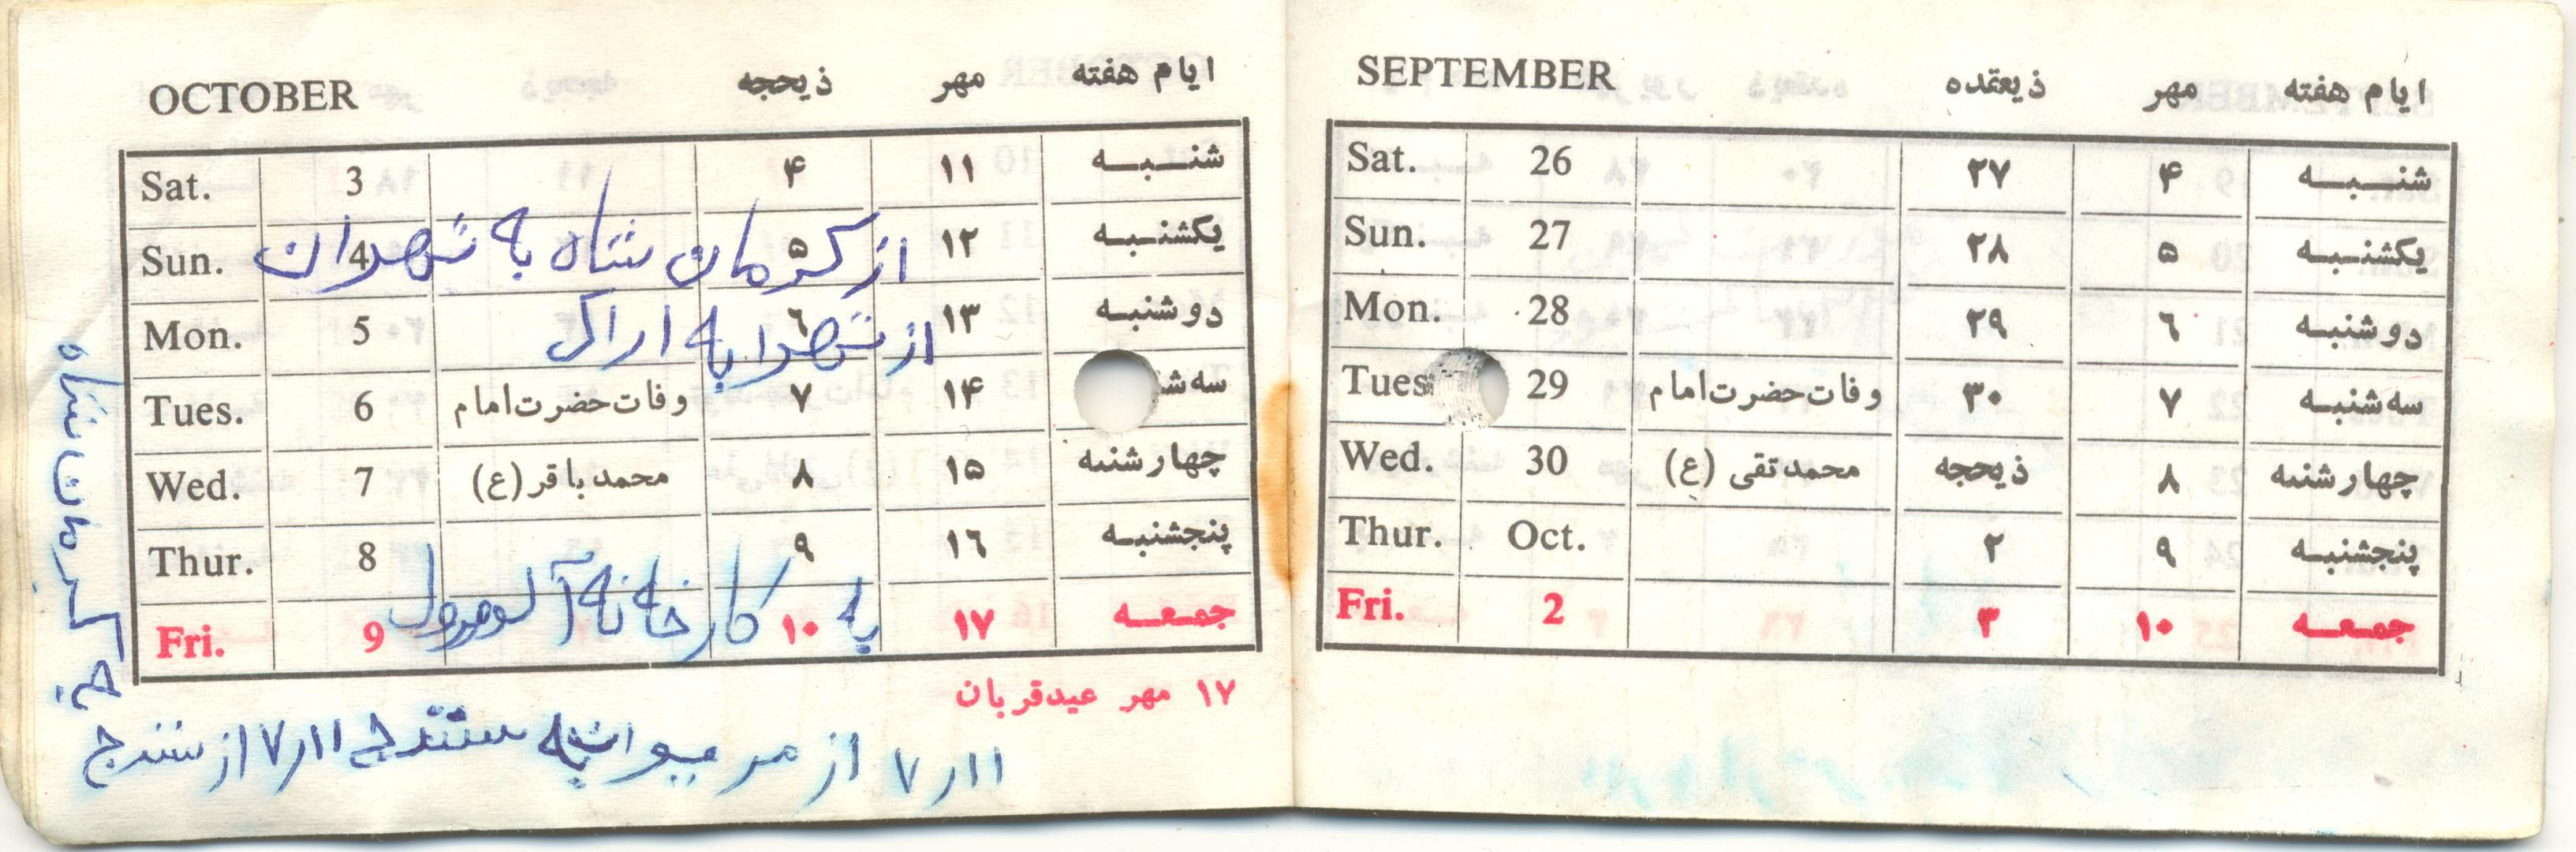 SEPTEMBER ذیعقده مهر ایام هفته
Sat. 26 ۲۷ ۴ شنبه
Sun. 27 ۲۸ ۵ یکشنبه
Mon. 28 ۲۹ ۶ دوشنبه
Tues 29 وفات حضرت امام ۳۰ ۷ سه شنبه
Wed. 30 محمد تقی (ع) ذیحجه ۸ چهارشنبه
Thur. Oct. ۲ ۹ پنجشنبه
Fri. 2 ۳ ۱۰ جمعه
OCTOBER ذیحجه مهر ایام هفته
Sat. 3 ۴ ۱۱ شنبه
Sun. 4 ۵ ۱۲ یکشنبه
از کرمان شاه به تهران
Mon. 5 ۶ ۱۳ دوشنبه
از تهرا به اراک
Tues. 6 وفات حضرت امام ۷ ۱۴ سه ش
Wed. 7 محمد باقر (ع) ۸ ۱۵ چهارشنبه
Thur. 8 ۹ ۱۶ پنجشنبه
Fri. 9 ۱۰ ۱۷ جمعه
به کارخانه آلومرول
۱۷ مهر عید قربان
۷٫۱۱ از مریوان به سنندج ۷٫۱۱ از سنندج
به کرمان شاه